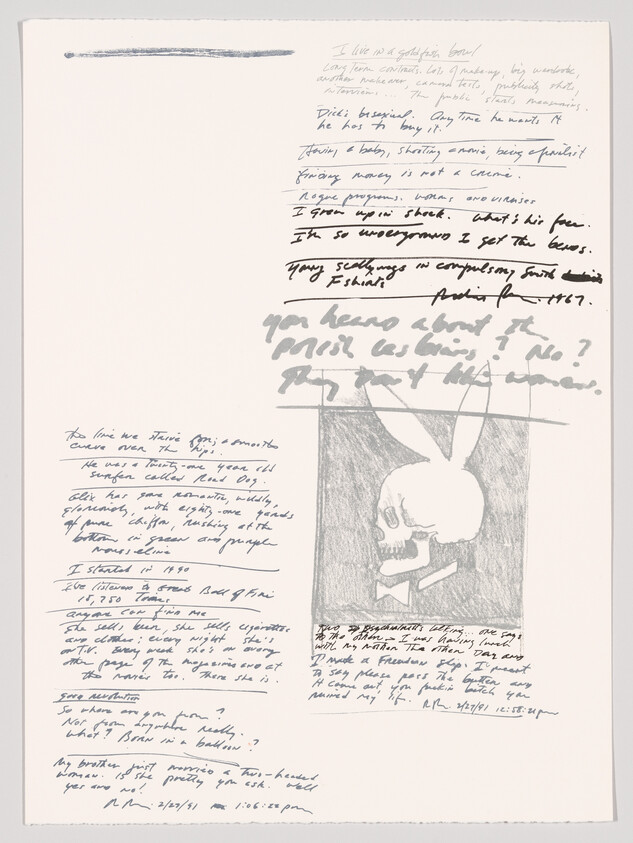 I live in a goldfish bowl
Long term contracts. Lots of make-up, big wardrobe,
another makeover, camera tests, publicity shots,
interviews... The public starts measuring.
Dick's bisexual. Anytime he wants it
he has to buy it.
Having a baby, shooting a movie, being a finalist
finding money is not a crime.
Rogue programs. worms and viruses
I grew up in shock. What's his face.
I'm so underground I get the bends.
Young scallywags in compulsory Smith
T shirts
1967.
you heard about the
Polish lesbians? No?
They don't like women.
the line we strive for; a smooth
curve over the hips.
He was a twenty-one year old
surfer called Road Dog.
Alix has gone romantic, wildly,
gloriously, with eighty-one yards
of pure chiffon, rushing at the
bottom in green and purple
mousseline
I started in 1940
I've listened to Great Ball of Fire
15,750 Times
anyone can find me
She sells beer, she sells cigarettes
and clothes; every night she's
on T.V. Every week she's on every
other page of the magazines and at
the movies too. There she is.
good revolution
So where are you from?
Not from anywhere really.
What? Born in a balloon?
My brother just married a two-headed
woman. Is she pretty you ask. Well
yes and no!
2/27/91 1:06:22 pm
Two psychiatrists talking... one says
to the other - I was having lunch
with my mother the other day and
I made a Freudian slip. I meant
to say please pass the butter and
it came out, you fuckin bitch you
ruined my life. 2/27/91 12:58:21 pm